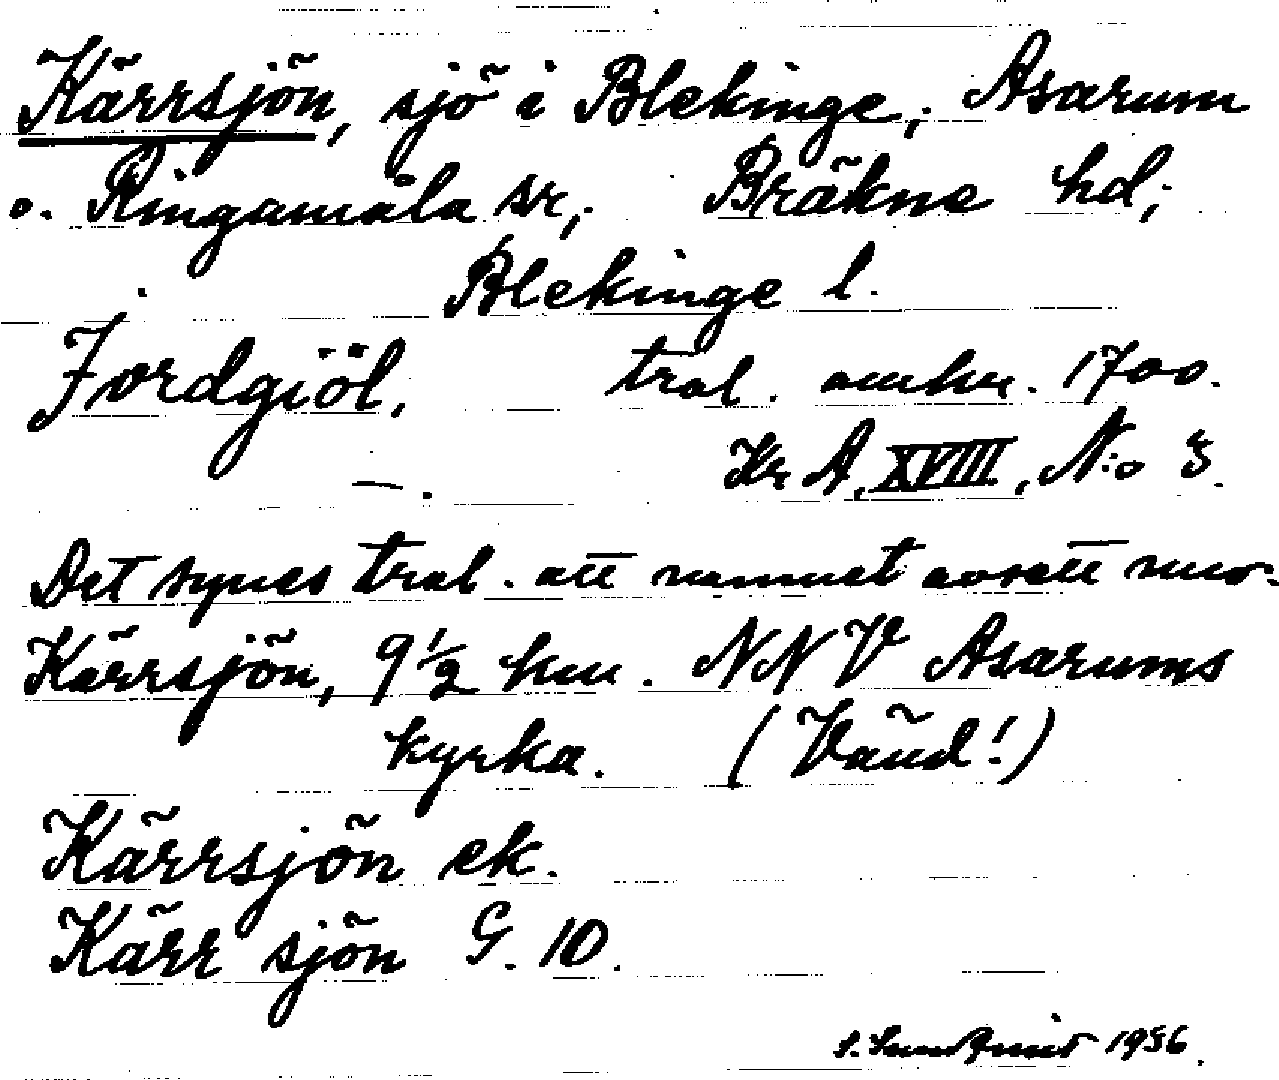 Kärrsjön, sjö i Blekinge, Asarum
o. Ringamåla sr, Bräkne hd;
Blekinge l.
Jordgiöl, trol. omkr. 1700.
Kr A, XVIII, N:o 3.
Det synes trol. att namnet avsett nuv.
Kärrsjön, 9 1/2 km. NNV Asarums
kyrka. (Vänd!)
Kärrsjön ek.
Kärr sjön G. 10.
1956.